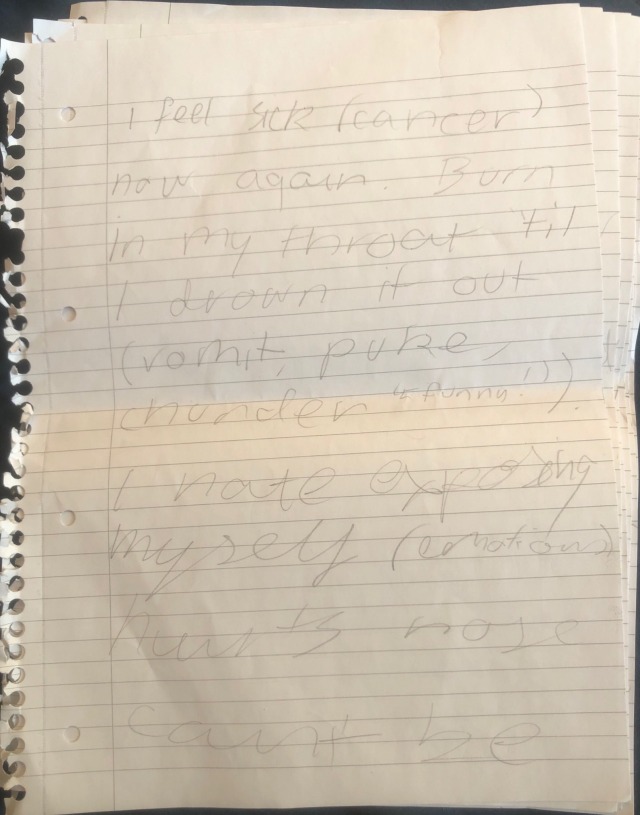 I feel sick (cancer)
now again. Burn
in my throat 'til
I drown it out
(vomit, puke,
chunder "funny!")).
I hate exposing
myself (emotions)
hurts nose
can't be